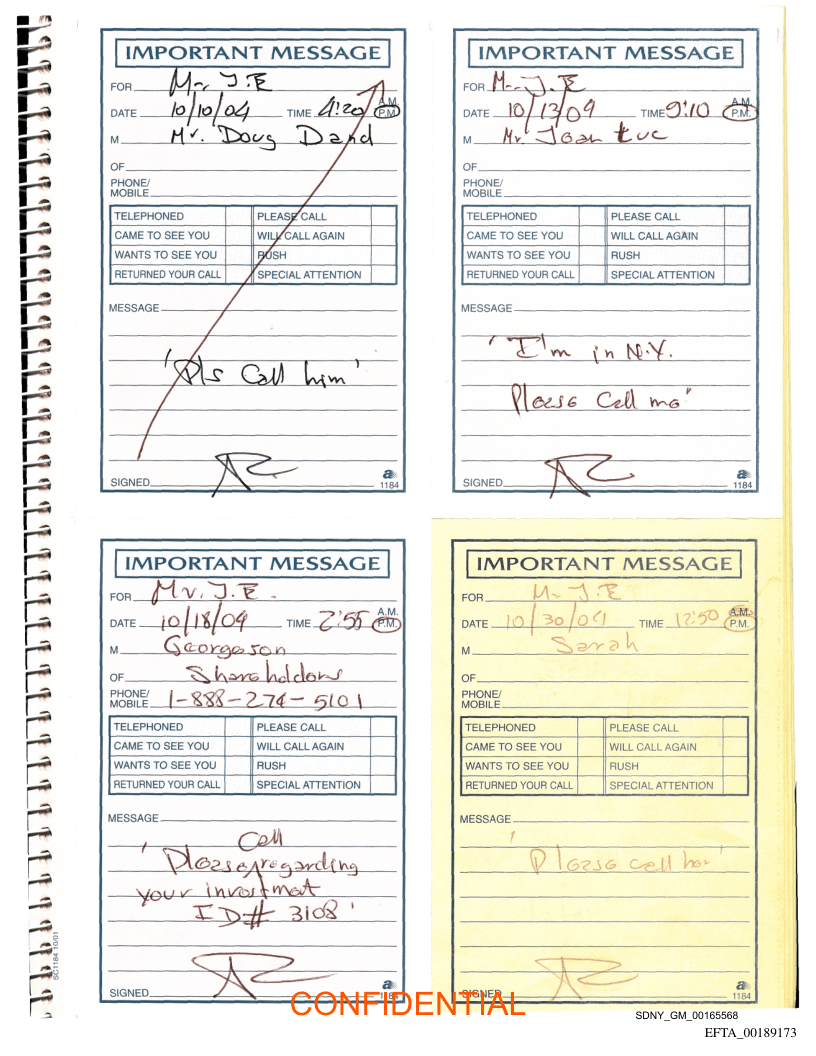 IMPORTANT MESSAGE
FOR Mr. J.E
DATE 10/10/04 TIME 4:20 A.M. P.M.
M Mr. Doug Dand
OF
PHONE/
MOBILE
TELEPHONED PLEASE CALL
CAME TO SEE YOU WILL CALL AGAIN
WANTS TO SEE YOU RUSH
RETURNED YOUR CALL SPECIAL ATTENTION
MESSAGE
'Pls Call him'
SIGNED
a
1184
IMPORTANT MESSAGE
FOR Mr. J.E
DATE 10/13/04 TIME 9:10 A.M. P.M.
M Mr. Jean Luc
OF
PHONE/
MOBILE
TELEPHONED PLEASE CALL
CAME TO SEE YOU WILL CALL AGAIN
WANTS TO SEE YOU RUSH
RETURNED YOUR CALL SPECIAL ATTENTION
MESSAGE
'I'm in N.Y.
Please Call me"
SIGNED
a
1184
IMPORTANT MESSAGE
FOR Mr. J.E.
DATE 10/18/04 TIME 2:55 A.M. P.M.
M Georgeson
OF Shareholders
PHONE/
MOBILE 1-888-274-5101
TELEPHONED PLEASE CALL
CAME TO SEE YOU WILL CALL AGAIN
WANTS TO SEE YOU RUSH
RETURNED YOUR CALL SPECIAL ATTENTION
MESSAGE
Call
'Please regarding
your investmet
ID# 3108'
SIGNED
a
SC1184 10/01
IMPORTANT MESSAGE
FOR Mr. J.E
DATE 10/30/04 TIME 12:50 A.M. P.M.
M Sarah
OF
PHONE/
MOBILE
TELEPHONED PLEASE CALL
CAME TO SEE YOU WILL CALL AGAIN
WANTS TO SEE YOU RUSH
RETURNED YOUR CALL SPECIAL ATTENTION
MESSAGE
'Please call her'
SIGNED
a
1184
CONFIDENTIAL
SDNY_GM_00165568
EFTA_00189173